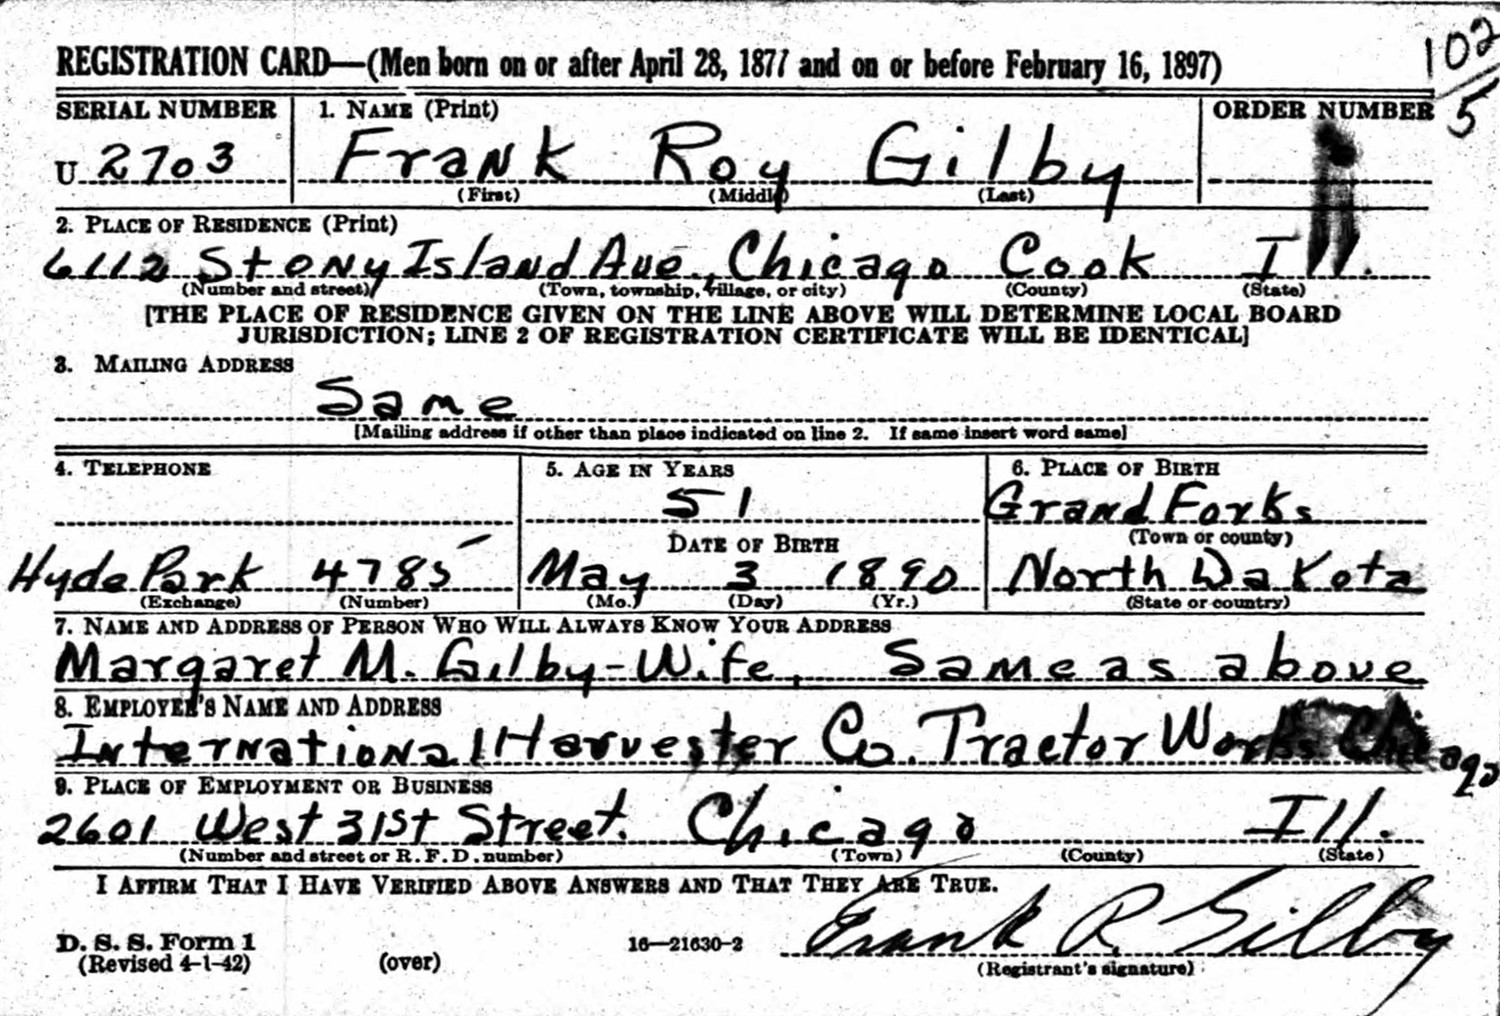 REGISTRATION CARD—(Men born on or after April 28, 1877 and on or before February 16, 1897)
102
5
SERIAL NUMBER 1. NAME (Print) ORDER NUMBER
U 2703 Frank Roy Gilby
(First) (Middle) (Last)
2. PLACE OF RESIDENCE (Print)
6112 Stony Island Ave., Chicago Cook Ill.
(Number and street) (Town, township, village, or city) (County) (State)
[THE PLACE OF RESIDENCE GIVEN ON THE LINE ABOVE WILL DETERMINE LOCAL BOARD
JURISDICTION; LINE 2 OF REGISTRATION CERTIFICATE WILL BE IDENTICAL]
3. MAILING ADDRESS
Same
[Mailing address if other than place indicated on line 2. If same insert word same]
4. TELEPHONE 5. AGE IN YEARS 6. PLACE OF BIRTH
51 Grand Forks
DATE OF BIRTH (Town or county)
Hyde Park 4785 May 3 1890 North Dakota
(Exchange) (Number) (Mo.) (Day) (Yr.) (State or country)
7. NAME AND ADDRESS OF PERSON WHO WILL ALWAYS KNOW YOUR ADDRESS
Margaret M. Gilby-Wife, Same as above
8. EMPLOYER'S NAME AND ADDRESS
International Harvester Co. Tractor Works Chicago
9. PLACE OF EMPLOYMENT OR BUSINESS
2601 West 31st Street. Chicago Ill.
(Number and street or R. F. D. number) (Town) (County) (State)
I AFFIRM THAT I HAVE VERIFIED ABOVE ANSWERS AND THAT THEY ARE TRUE.
D. S. S. Form 1
(Revised 4-1-42) (over) 16—21630-2 Frank R. Gilby
(Registrant's signature)